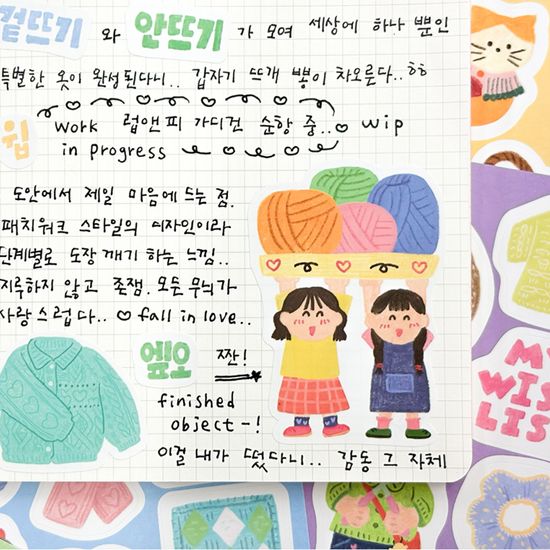 겉뜨기 와 안뜨기 가 모여 세상에 하나 뿐인
특별한 옷이 완성된다니.. 갑자기 뜨개 뽕이 차오른다..ㅎㅎ
윕 work 럽앤피 가디건 순항 중..♡ wip
in progress
도안에서 제일 마음에 드는 점.
패치워크 스타일의 디자인이라
단계별로 도장 깨기 하는 느낌..
지루하지 않고 존잼. 모든 무늬가
사랑스럽다.. ♡ fall in love..
엪오 짠!
finished
object-!
이걸 내가 떴다니.. 감동 그 자체
MY
WIS
LIS